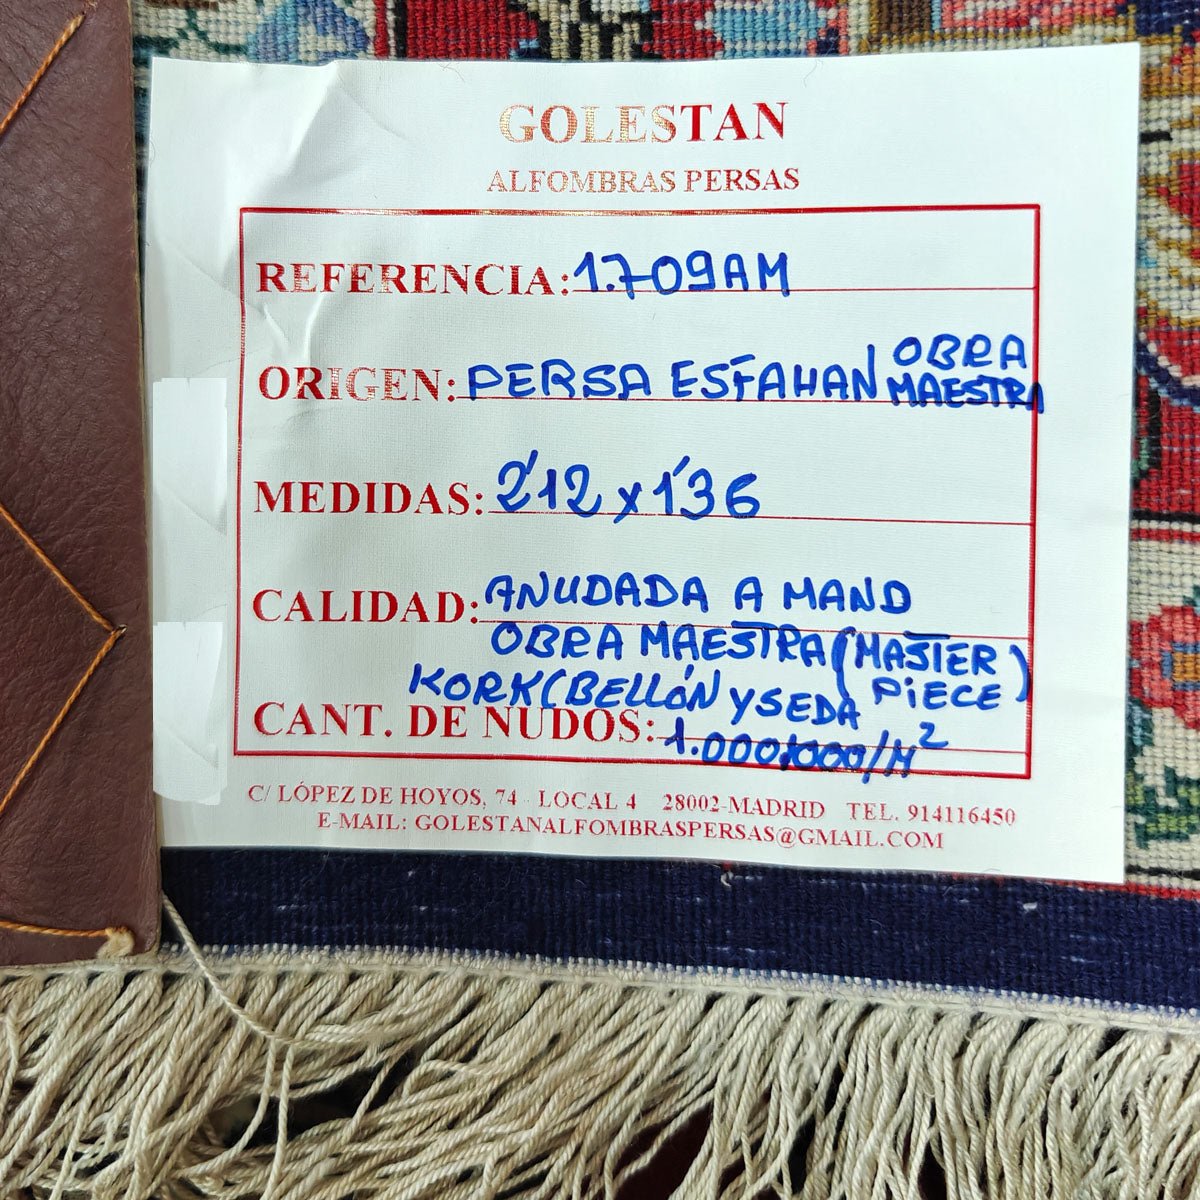 GOLESTAN
ALFOMBRAS PERSAS
REFERENCIA: 1.709AM
ORIGEN: PERSA ESFAHAN OBRA MAESTRA
MEDIDAS: 2'12 x 1'36
CALIDAD: ANUDADA A MANO
OBRA MAESTRA (MASTER PIECE)
KORK (BELLÓN Y SEDA
CANT. DE NUDOS: 1.000.000/M²
C/ LÓPEZ DE HOYOS, 74 - LOCAL 4 28002-MADRID TEL. 914116450
E-MAIL: GOLESTANALFOMBRASPERSAS@GMAIL.COM